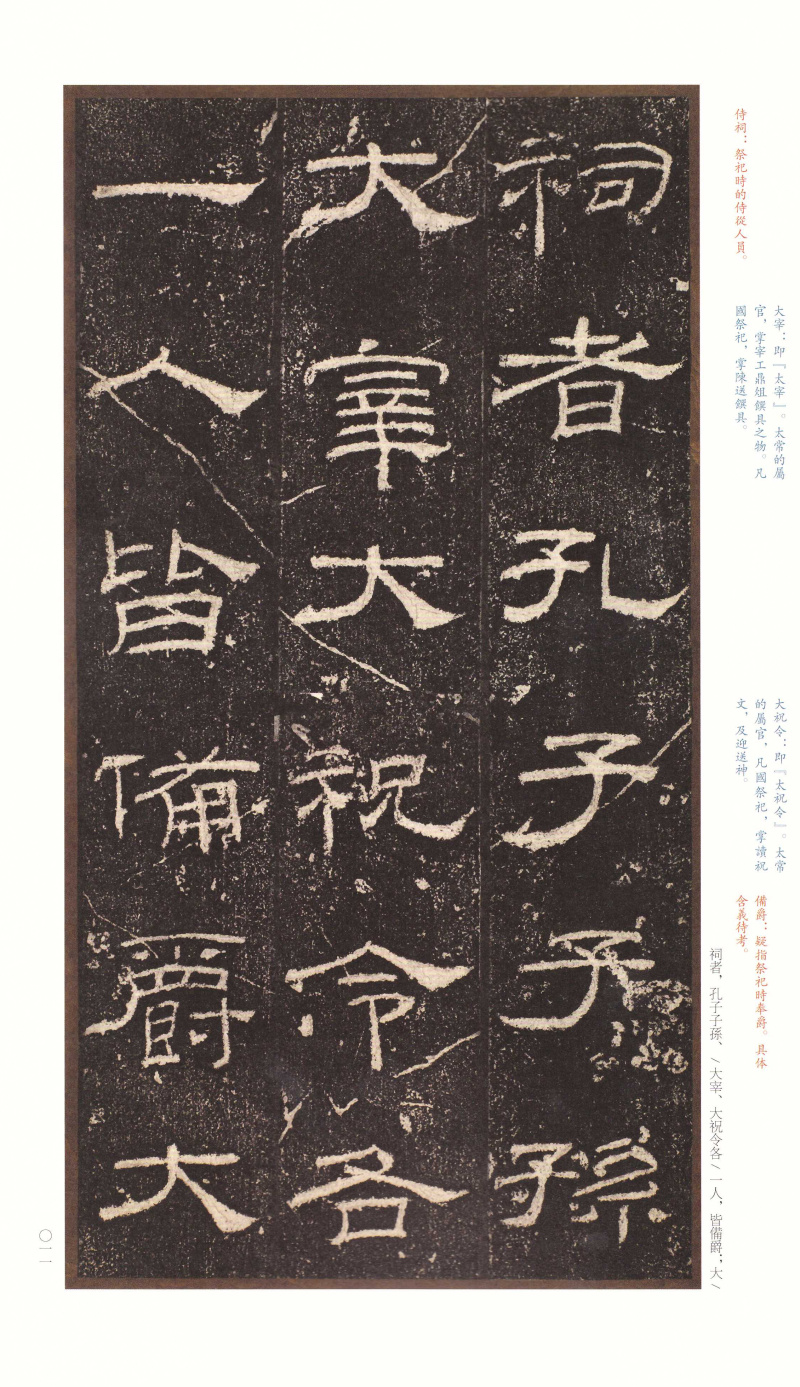 侍祠：祭祀時的侍從人員。
大宰：即『太宰』。太常的屬
官，掌宰工鼎俎饌具之物。凡
國祭祀，掌陳送饌具。
大祝令：即『太祝令』。太常
的屬官，凡國祭祀，掌讀祝
文，及迎送神。
備爵：疑指祭祀時奉爵。具体
含義待考。
祠者，孔子子孫、/大宰、大祝令各/一人，皆備爵；大/
祠者孔子子孫
大宰大祝令各
一人皆備爵大
〇一一